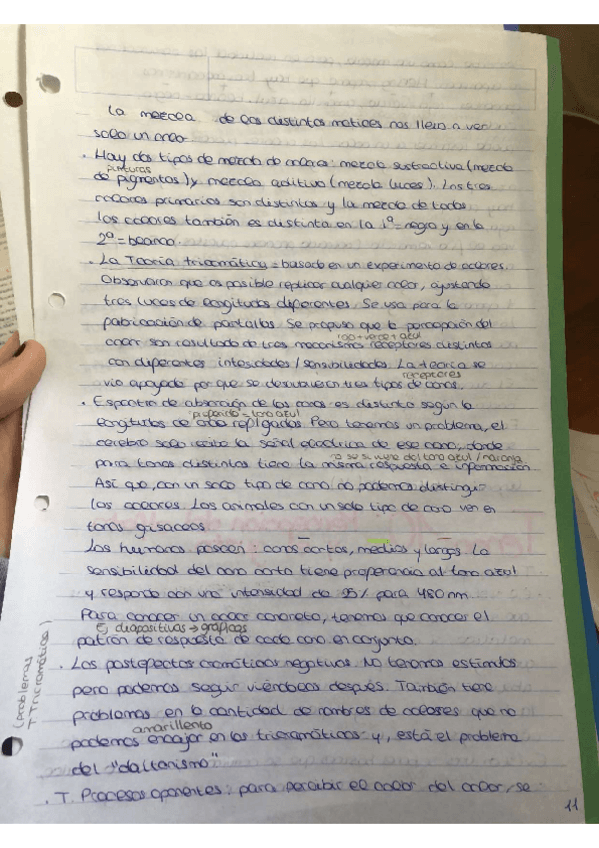 La mezcla de los distintos matices nos lleva a ver
solo un color.
· Hay dos tipos de mezcla de colores: mezcla sustractiva (mezcla
pinturas
de pigmentos) y mezcla aditiva (mezcla luces). Los tres
colores primarios son distintos y la mezcla de todos
los colores también es distinta en la 1º = negro y en la
2º = blanco.
· La Teoría tricromática = basado en un experimento de colores.
Observaron que es posible replicar cualquier color, ajustando
tres luces de longitudes diferentes. Se usa para la
fabricación de pantallas. Se propuso que la percepción del
rojo + verde + azul
color son resultado de tres mecanismos receptores distintos
con diferentes intesidades / sensibilidades. La teoría se
receptores
vio apoyada por que se descubrieron tres tipos de conos.
· Espectro de absorción de los conos es distinto según la
pigmento = tono azul
longitudes de onda reflejadas. Pero tenemos un problema, el
cerebro solo recibe la señal eléctrica de ese cono, donde
no se si viene del tono azul / naranja
para tonos distintos tiene la misma respuesta e información
Así que, con un solo tipo de cono no podemos distinguir
los colores. Los animales con un solo tipo de cono ven en
tonos grisaceos.
Los humanos poseen: conos cortos, medios y largos. La
sensibilidad del cono corto tiene preferencia al tono azul
y responde con una intensidad de 95% para 450 nm.
Para conocer un color concreto, tenemos que conocer el
↳ diapositivas → gráficos
patrón de respuesta de cada cono en conjunto.
(problemas
T Tricromáticas)
· Los postefectos cromáticos negativos. No tenemos estímulos
pero podemos seguir viéndolos después. También tiene
problemas en la cantidad de nombres de colores que no
amarillento
podemos encajar en las tricromáticas y, está el problema
del "daltonismo"
· T. Procesos oponentes: para percibir el color del color, se
11